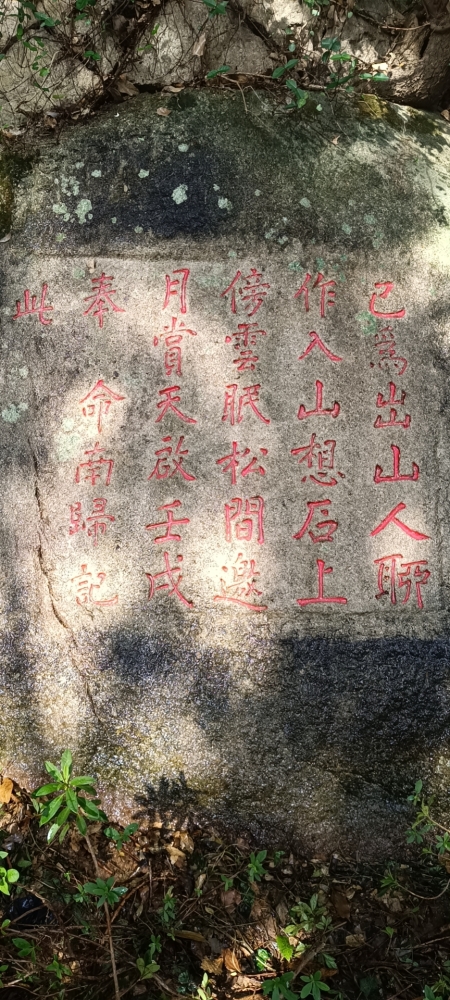 已為出山人聊
作入山想石上
傍雲眠松間邀
月賞天啟壬戌
奉 命南歸記
此